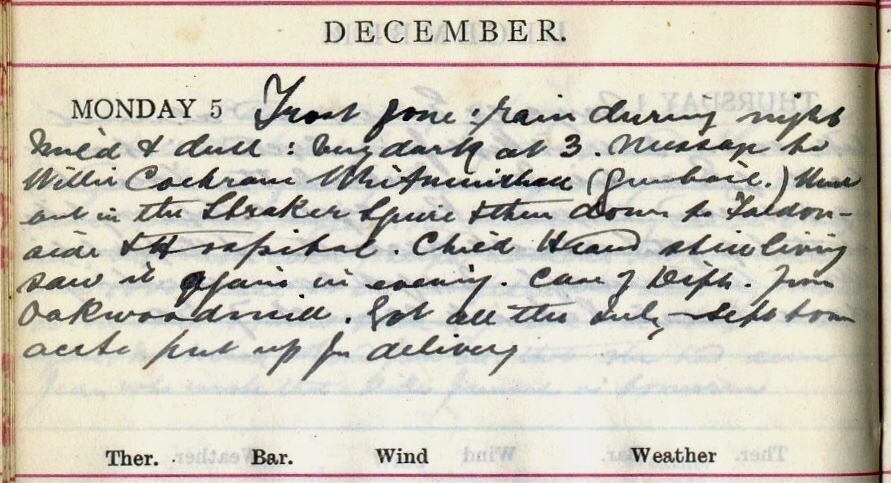 DECEMBER.
MONDAY 5 Frost gone : rain during night
Mild & dull : very dark at 3. Message to
Willie Cochrane Whitmuirhall (Gumboil.) Went
out in the Straker Squire & then down to Faldon-
side & Hospital. Child Hand still living
saw it again in evening. Case of Diph. from
Oakwoodmill. Got all the July - Sept town
accts put up for delivery
Ther. Bar. Wind Weather